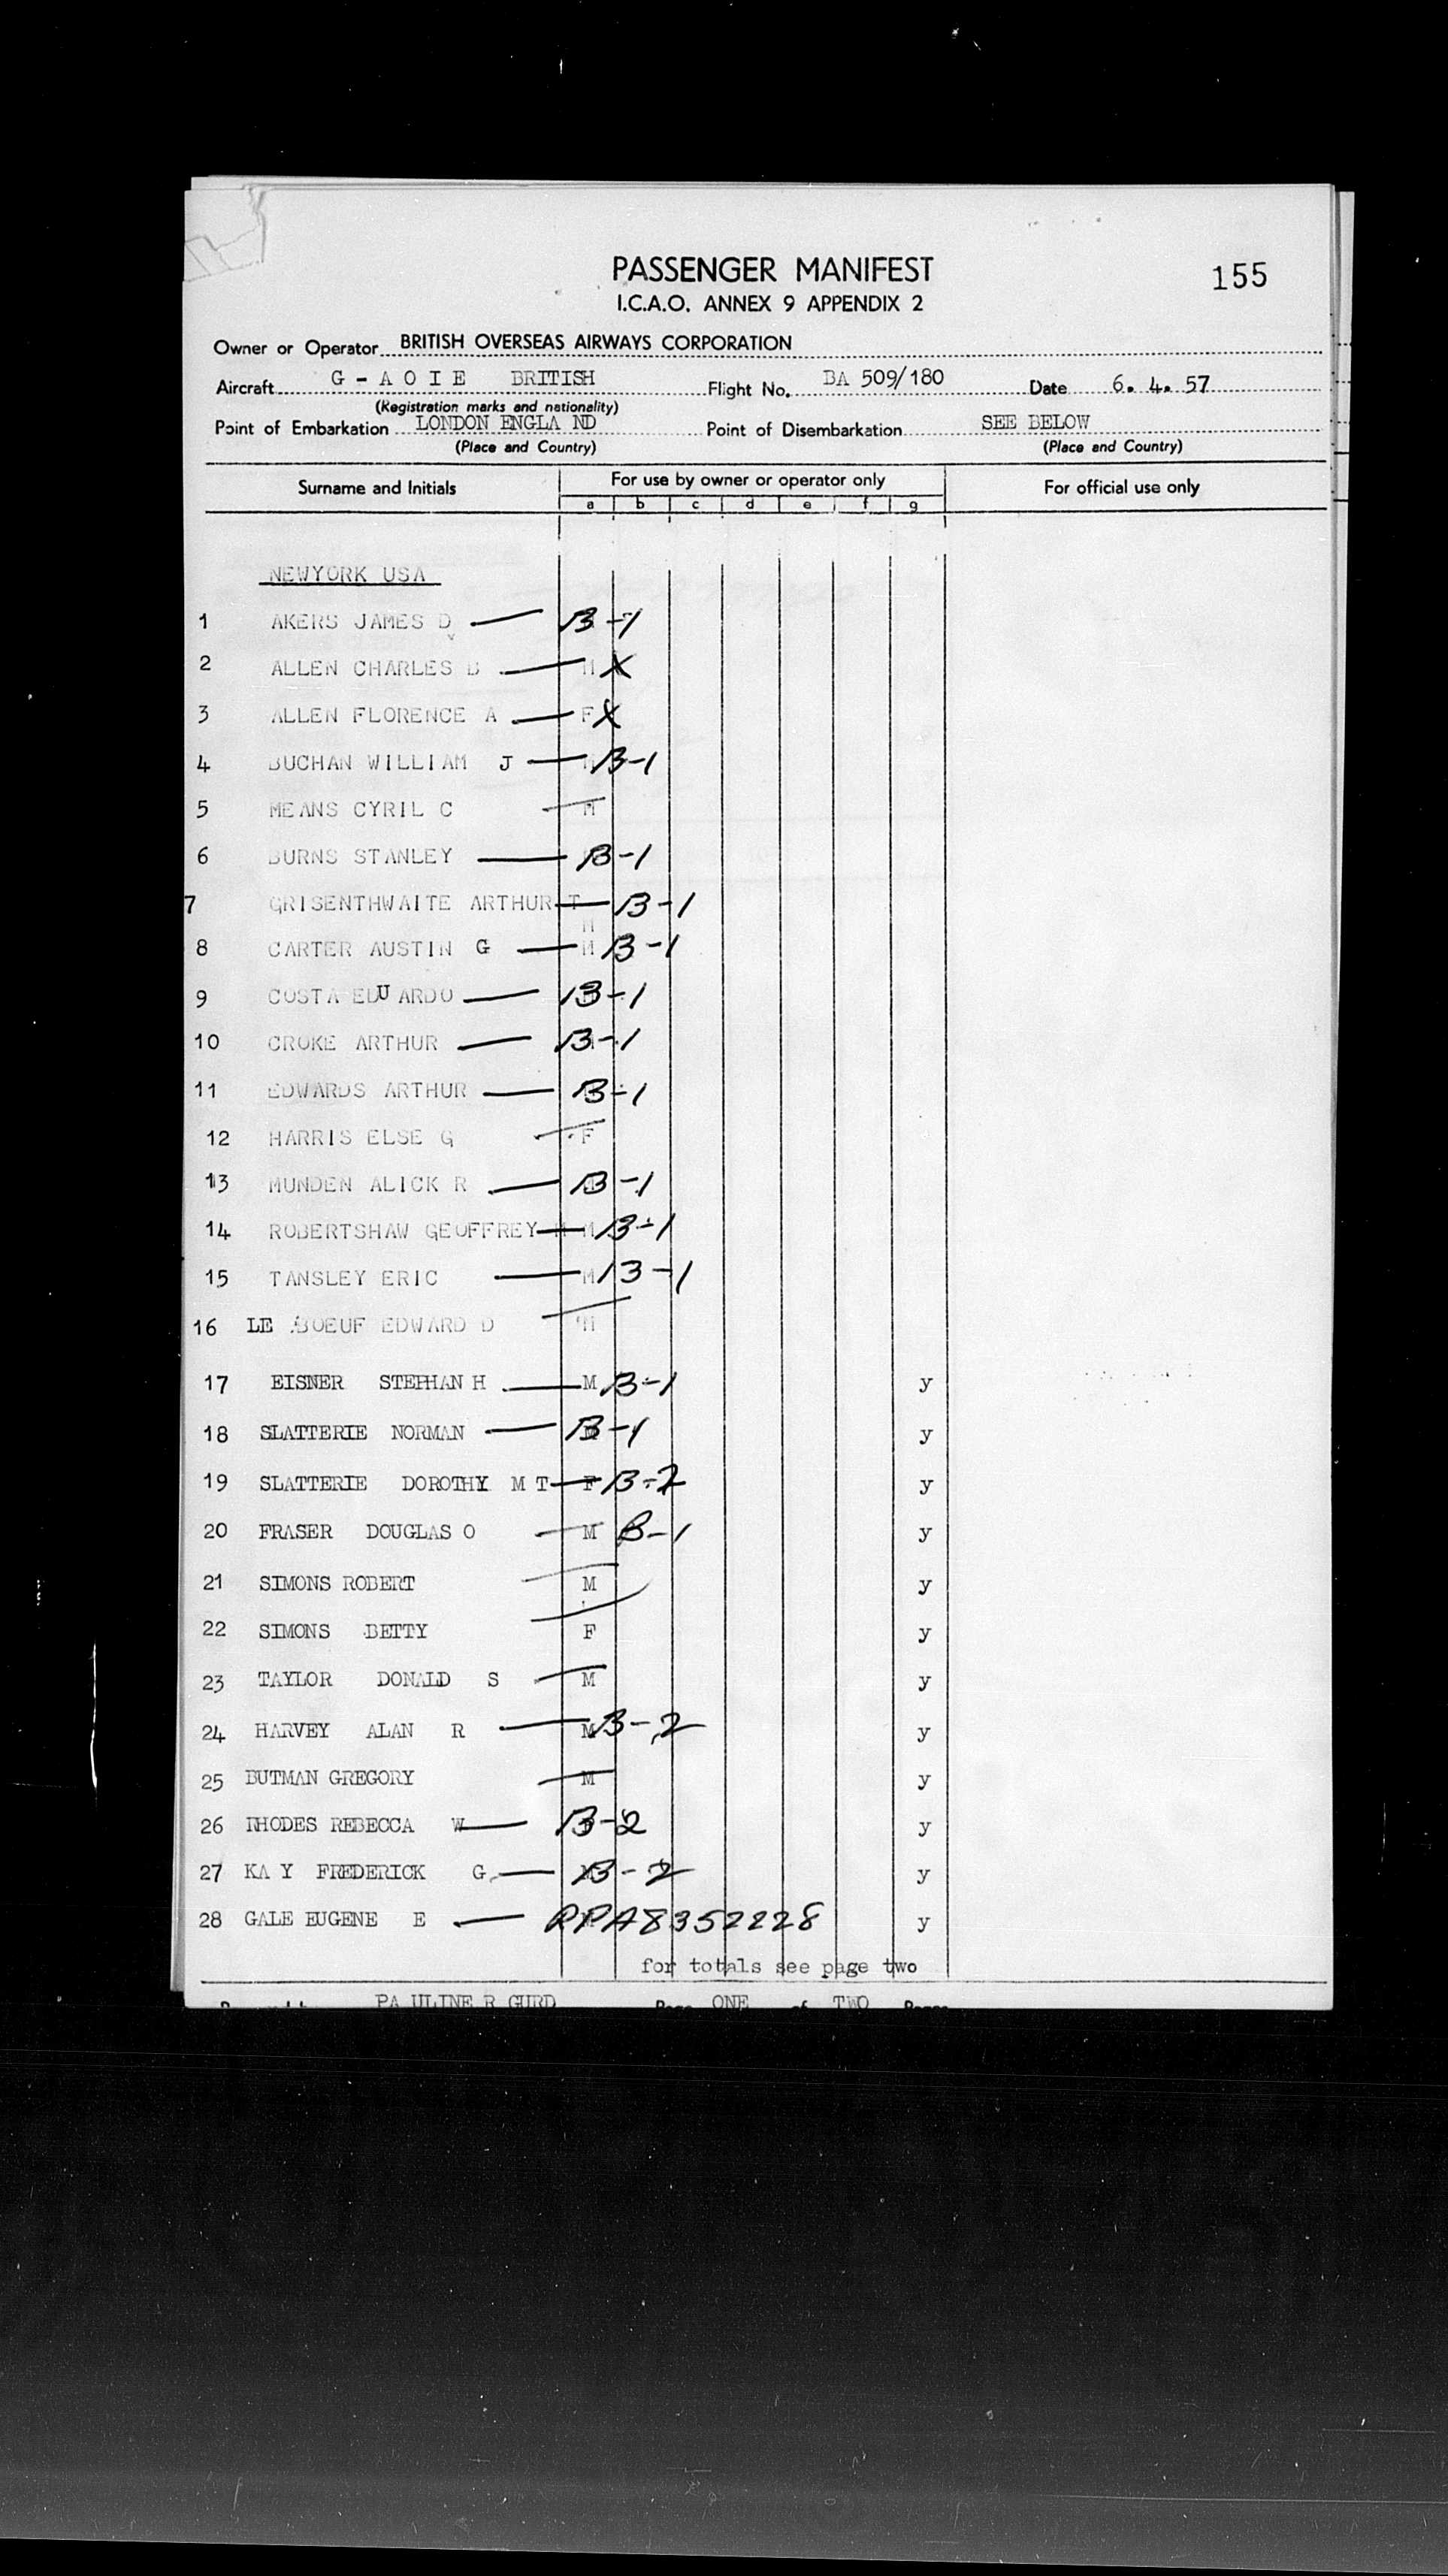 PASSENGER MANIFEST
155
I.C.A.O. ANNEX 9 APPENDIX 2
Owner or Operator BRITISH OVERSEAS AIRWAYS CORPORATION
Aircraft G - A O I E BRITISH Flight No. BA 509/180 Date 6. 4. 57
(Registration marks and nationality)
Point of Embarkation LONDON ENGLA ND Point of Disembarkation SEE BELOW
(Place and Country) (Place and Country)
Surname and Initials For use by owner or operator only For official use only
a b c d e f g
NEWYORK USA
1 AKERS JAMES D B-1
2 ALLEN CHARLES B M X
3 ALLEN FLORENCE A F X
4 BUCHAN WILLIAM J M B-1
5 MEANS CYRIL C M
6 BURNS STANLEY B-1
7 GRISENTHWAITE ARTHUR T B-1
M
8 CARTER AUSTIN G M B-1
9 COSTA EDUARDO B-1
10 CROKE ARTHUR B-1
11 EDWARDS ARTHUR B-1
12 HARRIS ELSE G F
13 MUNDEN ALICK R B-1
14 ROBERTSHAW GEOFFREY M M B-1
15 TANSLEY ERIC M B-1
16 LE BOEUF EDWARD D M
17 EISNER STEPHAN H M B-1 y
18 SLATTERIE NORMAN B-1 y
19 SLATTERIE DOROTHY M T F B-2 y
20 FRASER DOUGLAS O M B-1 y
21 SIMONS ROBERT M y
22 SIMONS BETTY F y
23 TAYLOR DONALD S M y
24 HARVEY ALAN R M B-2 y
25 BUTMAN GREGORY M y
26 RHODES REBECCA W B-2 y
27 KA Y FREDERICK G. B-2 y
28 GALE EUGENE E RPA8352228 y
for totals see page two
PA ULINE R GURD Page ONE of TWO Pages